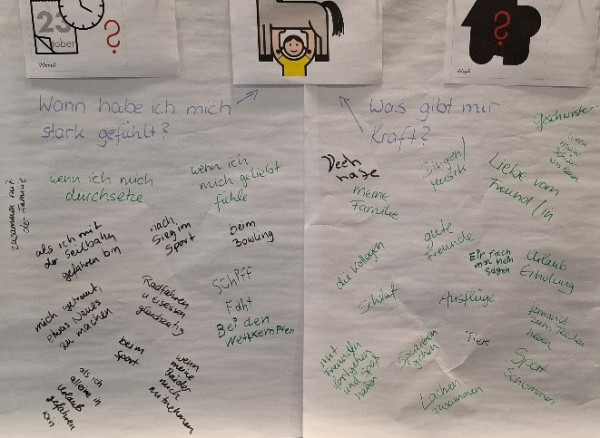 23
?
Wann?
?
Wer?
Wann habe ich mich
stark gefühlt?
Was gibt mir
Kraft?
zusammen mit
der Familie
wenn ich mich
durchsetze
wenn ich
mich geliebt
fühle
als ich mit
der Seilbahn
gefahren bin
nach
Sieg im
Sport
beim
Bowling
mich getraut,
etwas Neues
zu machen
Radfahren
u Eisessen
gleichzeitig
Schiff
Faht
Bei den
Wettkempfen
beim
Sport
als ich
alleine in
Urlaub
gefahren
bin
wenn
meine
Kinder
mich
Geschwister
meine
Familie
Singen/
musik
Liebe vom
Freund/in
die Kollegen
gute
Freunde
Ein fach
mal Nein
sagen
Urlaub
Erholung
Schlaf
Ausflüge
jemand
zum Reden
haben
mit
Freunden
fortgehen
und Spaß
haben
Spazieren
gehen
Tiere
Sport
Schwimmen
Lachen
zusammen